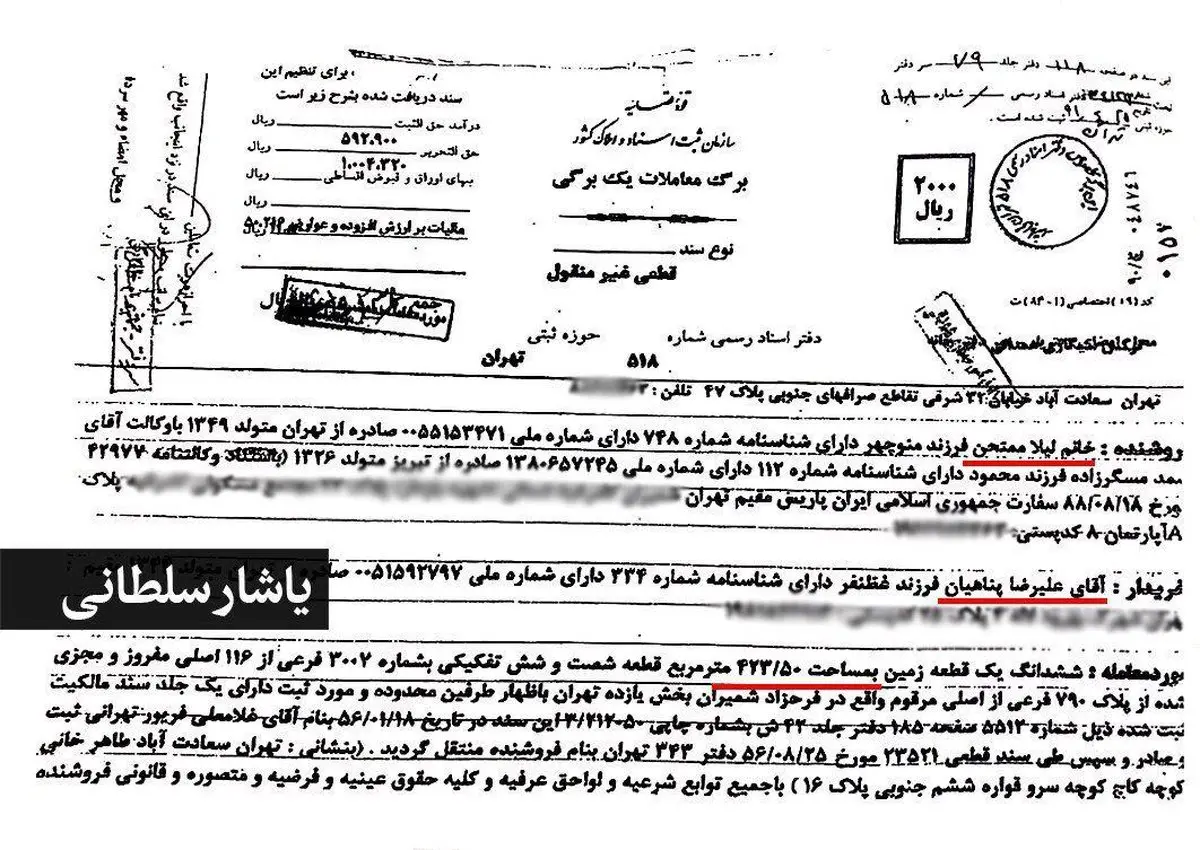 ثبت سند در صفحه ۱۱۸ دفتر جلد ۷۹ سر دفتر
دفتر اسناد رسمی شماره ۵۱۸
ثبت شده است.
تهران
۱۴۸۷۴۰
۸۵۱۰
۲۰۰۰
ریال
کد (۱۹) اختصاصی (۱-۸۴) ت
قوه قضائیه
سازمان ثبت اسناد و املاک کشور
برگ معاملات یک برگی
نوع سند
قطعی غیر منقول
برای تنظیم این
سند دریافت شده بشرح زیر است
درآمد حق الثبت ریال
۵۹۲،۹۰۰
حق التحریر ریال
۱،۰۰۴،۳۲۰
بهای اوراق و قبوض اقساطی ریال
ریال
مالیات بر ارزش افزوده و عوارض
و محل امضاء و مهر
دفتر اسناد رسمی شماره ۵۱۸ حوزه ثبتی تهران
تهران سعادت آباد خیابان ۳۲ شرقی تقاطع صرافهای جنوبی پلاک ۴۷ تلفن :
روشنده : خانم لیلا ممتحن فرزند منوچهر دارای شناسنامه شماره ۷۴۸ دارای شماره ملی ۰۰۵۵۱۵۳۴۷۱ صادره از تهران متولد ۱۳۴۹ باوکالت آقای
مسگرزاده فرزند محمود دارای شناسنامه شماره ۱۱۲ دارای شماره ملی ۱۳۸۰۶۵۷۲۴۵ صادره از تبریز متولد ۱۳۲۶ (باستناد وکالتنامه ۴۲۹۷۷
مورخ ۸۸/۰۸/۱۸ سفارت جمهوری اسلامی ایران پاریس مقیم تهران پلاک
آپارتمان ۸ کدپستی
خریدار : آقای علیرضا پناهیان فرزند غظنفر دارای شناسنامه شماره ۳۳۴ دارای شماره ملی ۰۰۵۱۵۹۲۷۹۷ صادره از تهران متولد مقیم :
یاشار سلطانی
موردمعامله : ششدانگ یک قطعه زمین بمساحت ۴۲۳/۵۰ مترمربع قطعه شصت و شش تفکیکی بشماره ۳۰۰۲ فرعی از ۱۱۶ اصلی مفروز و مجزی
شده از پلاک ۷۹۰ فرعی از اصلی مرقوم واقع در فرحزاد شمیران بخش یازده تهران باظهار طرفین محدوده و مورد ثبت دارای یک جلد سند مالکیت
ثبت شده ذیل شماره ۵۵۱۳ صفحه ۱۸۵ دفتر جلد ۴۲ ش بشماره چاپی ۳/۲۱۲۰۵۰ این سند در تاریخ ۵۶/۰۱/۱۸ بنام آقای غلامعلی فریور تهرانی ثبت
و صادر و سپس طی سند قطعی ۲۳۵۲۱ مورخ ۵۶/۰۸/۲۵ دفتر ۳۴۳ تهران بنام فروشنده منتقل گردید . (بنشانی : تهران سعادت آباد طاهر خانی
کوچه کاج کوچه سرو قواره ششم جنوبی پلاک ۱۶ ) باجمیع توابع شرعیه و لواحق عرفیه و کلیه حقوق عینیه و فرضیه و متصوره و قانونی فروشنده